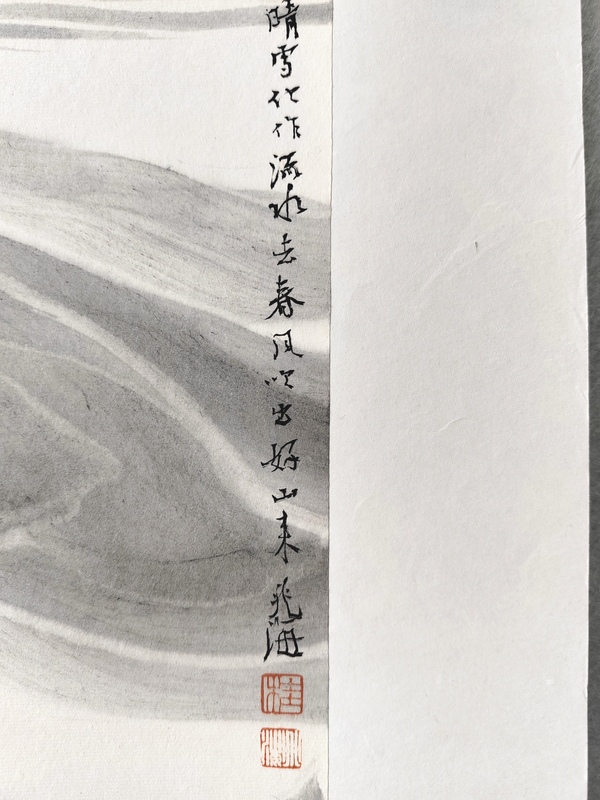 晴雪化作流水去春风吹出好山来